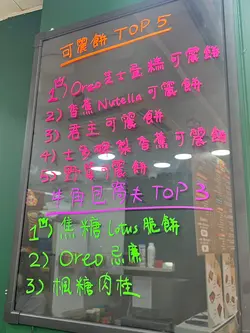 可麗餅 TOP 5
1) Oreo芝士蛋糕可麗餅
2) 香蕉Nutella可麗餅
3) 君主可麗餅
4) 士多啤梨香蕉可麗餅
5) 野莓可麗餅
牛角包窩夫 TOP 3
1) 焦糖Lotus脆餅
2) Oreo忌廉
3) 楓糖肉桂